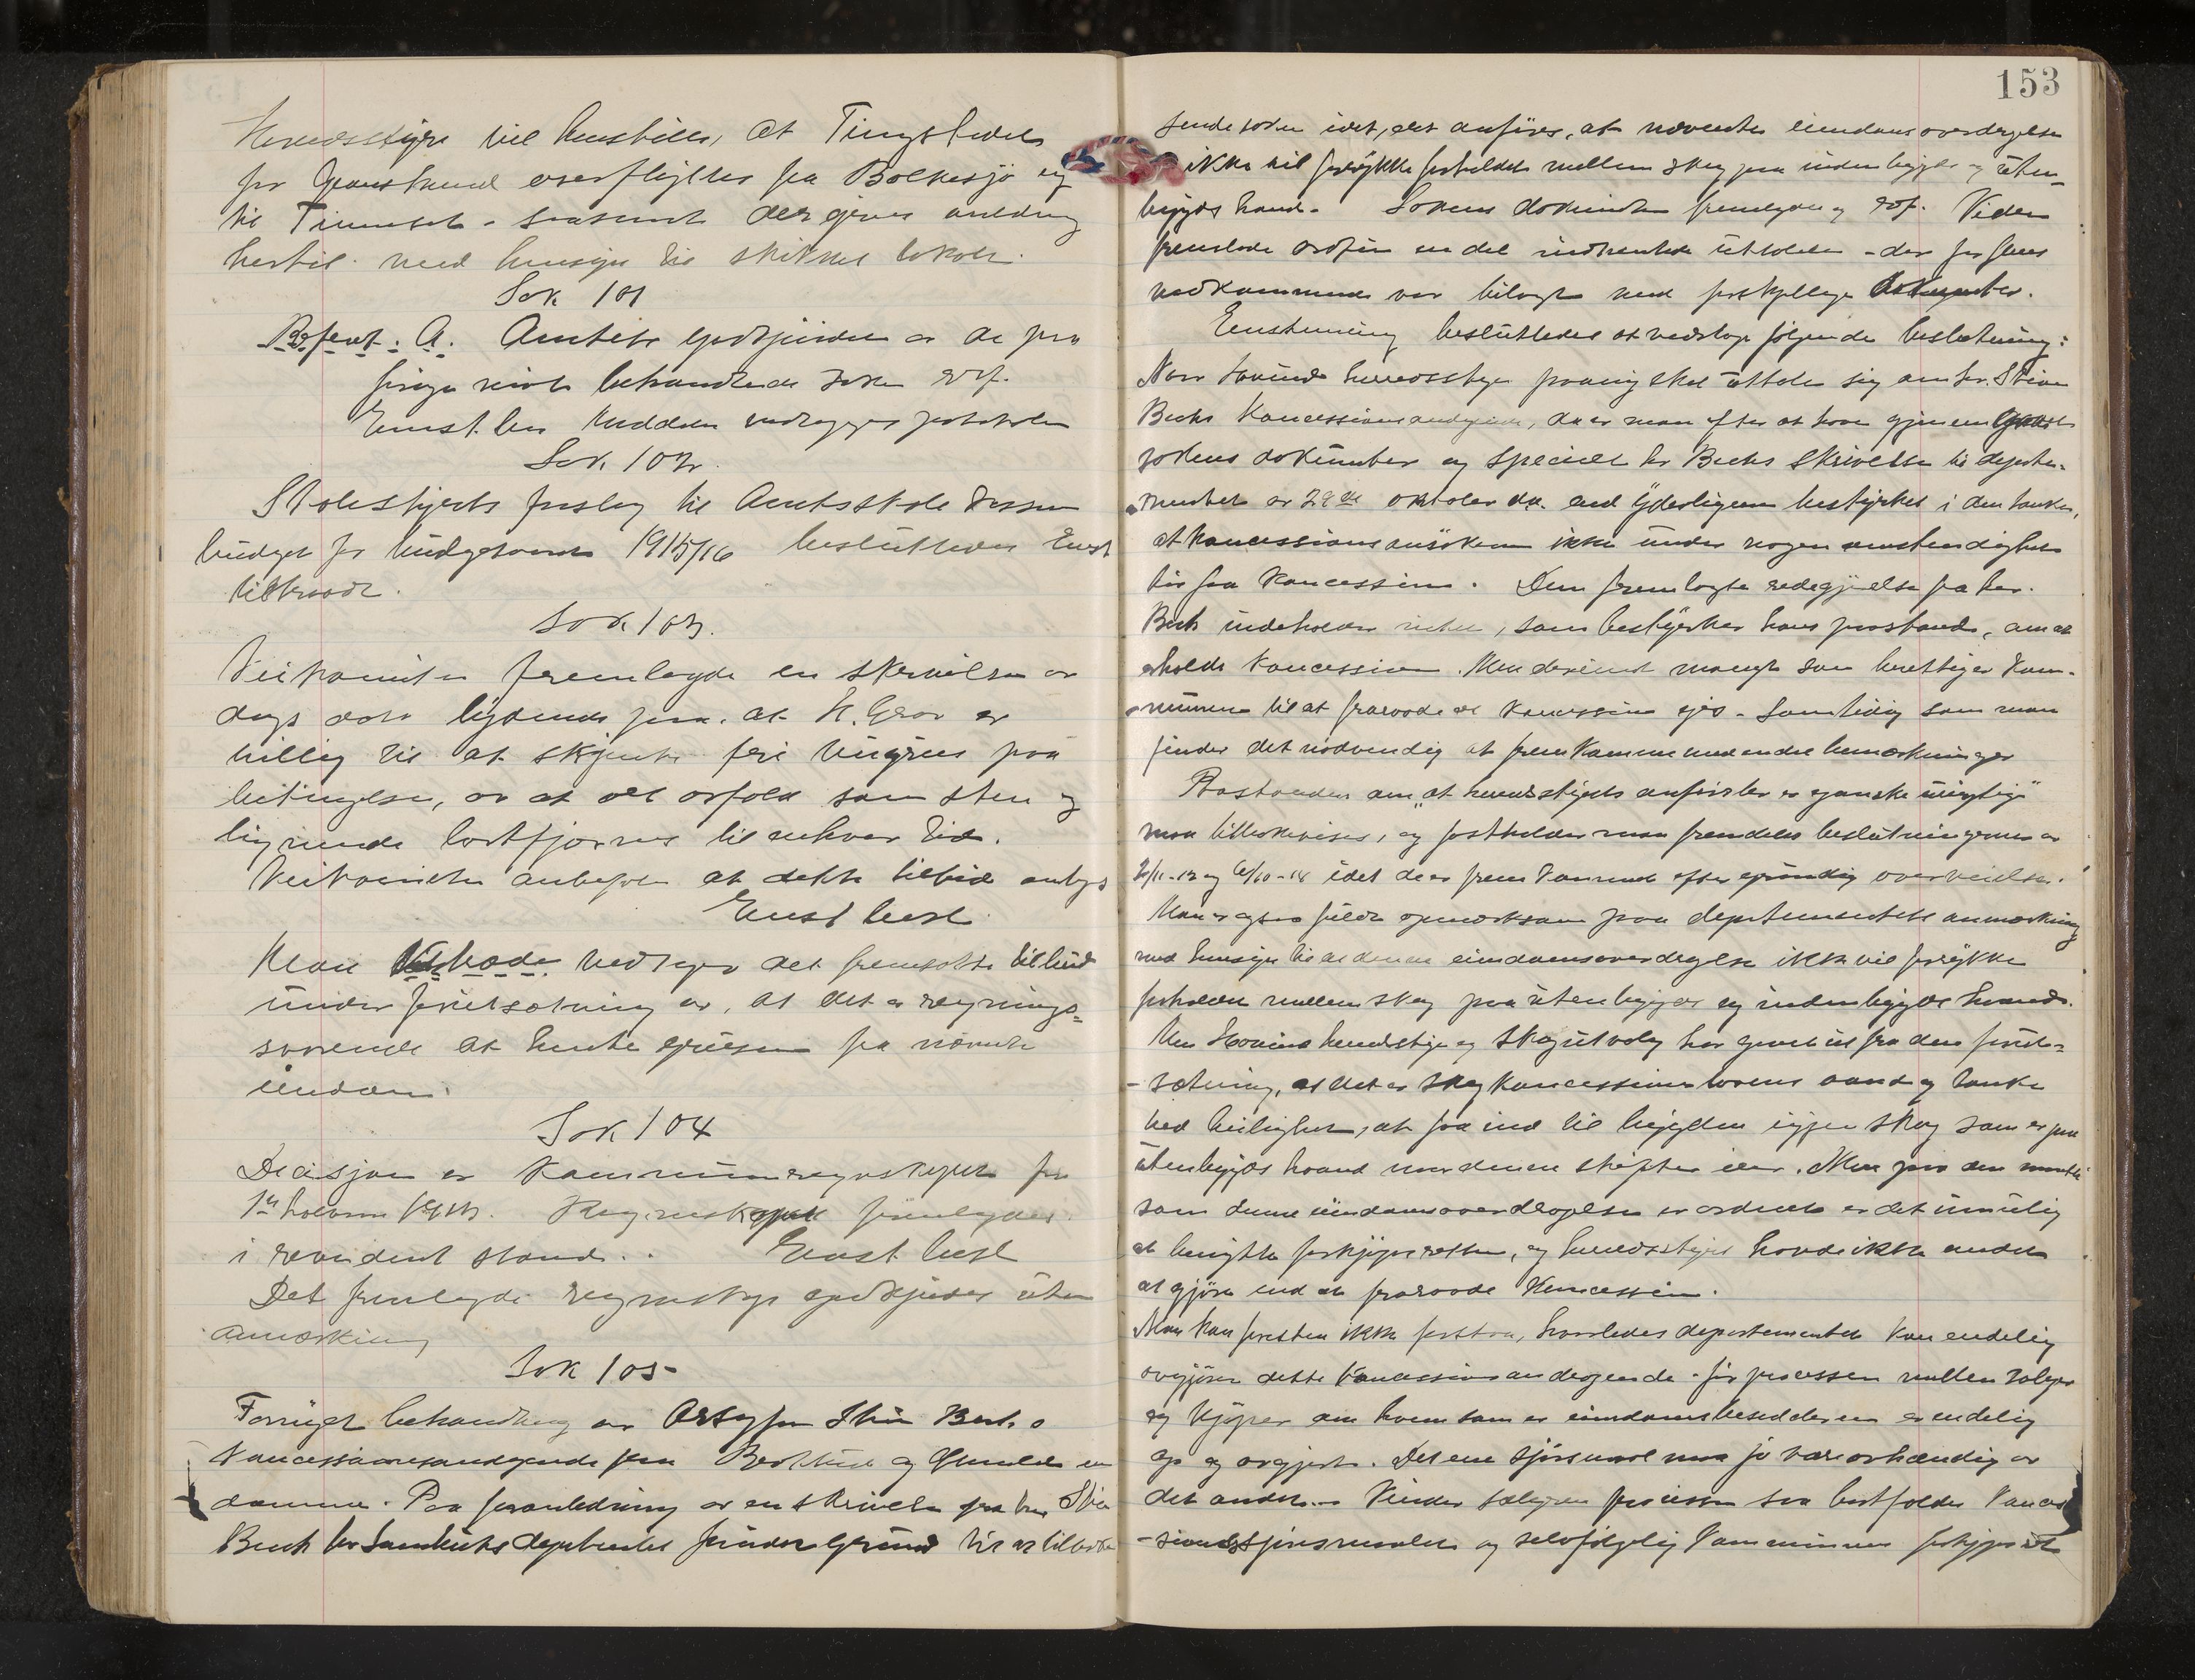 Herredsstyre vil henstille, at Tingstedet
for Gransherred overflyttes fra Bolkesjö og
til Tinnoset - saasnart der gives anledning
hertil med hensyn til skikket lokale.
Sak 101
Referat: A. Amtets godkjendelse av de paa
forige möte behandlede saker refr.
Enst. bes
Sak 102.
Skolestyrets forslag til Amtsskolekassen
budget for budgetaaret 1915/16 besluttedes Enst
tiltraadt.
Sak 103.
Veikomiteen fremlagde en skrivelse av
dags dato lydende paa, at H. Grov er
villig til at skjenke fri veigrus paa
betingelse, av at alt avfald som sten og
lignende bortfjernes til enhver tid.
Veikomiteen anbefaler at dette tilbud antages
Enst besl.
Man vedtager det fremsatte tilbud
under forutsætning av, at det er regnings-
svarende at hente grusen fra nævnte
eiendom.
Sak 104
Decisjon av kommuneregnskapet for
1ste halvaar. Regnskapet fremlagdes
i revidert stand. Enst besl
Det fremlagte regnskap godkjendes uten
anmærkning
Sak 105
Fornyet behandling av Stein Bechs
Koncessionsandragende paa og eien
domme. Paa foranledning av en skrivelse fra hr. Stein
Bech har Landbruks departementet fundet Grund til at tilbake
153
sende saken idet, det anföres, at nævnte eiendomsoverdragelse
ikke vil forrykke forholdet mellem skog paa indenbygds og uten-
bygds haand. Sakens dokumenter fremlagdes og ref. Viden
fremlagde ordförer en del indhentede uttalelser - der for
vedkommende var bilagt med forskjellige dokumenter.
Enstemmig besluttedes at vedtage følgende beslutning:
Naar Hovind herredsstyre paany skal uttale sig om hr. Stein
Bechs Koncessionsandragende, da er man efter at have gjennemgaaet
sakens dokumenter og specielt hr Bechs skrivelse til departe-
mentet av 29de oktober da. end yderligere bestyrket i den tanke,
at koncessionsansökeren ikke under nogen omstendighet
bör faa Koncession. Den fremlagte redegjörelse fra hr.
Bech indeholder intet, som bestyrker hans paastand, om at
erholde Koncession. Men derimot meget som berettiger Kom-
munen til at fraraade at Koncession gies. Samtidig som man
finder det nödvendig at fremkomme med endel bemærkninger
Paastanden om "at herredsstyrets anförsler er ganske uriktig"
maa tilbakevises, og fastholder man fremdeles beslutningerne av
2/11-12 og 6/10-14 idet de er fremkommet efter grundig overveielse.
Man er ogsaa fuldt opmerksom paa departementets anmærkning
med hensyn til at denne eiendomsoverdragelse ikke vil forrykke
forholdet mellem skog paa utenbygds og indenbygds haand.
Men Hovind herredsstyre og skogutvalg har gaaet ut fra den forut-
-sætning, at det er Skogkoncessionslovens aand og tanke
ved leilighet, at faa ind til bygden igjen skog som er paa
utenbygds haand naar denne skifter eier. Men paa den maate
som denne eiendomsoverdragelse er ordnet er det umulig
at benytte forkjöpsretten, og herredsstyret havde ikke andet
at gjöre end at fraraade Koncession.
Man kan forresten ikke forstaa, hvorledes departementet kan endelig
avgjöre dette Koncessionsandragende för processen mellem sælger
og kjöper om hvem som er eiendomsbesidderen er endelig
op og avgjort. Det ene spörsmaal maa jo være avhængig av
det andet. Vinder sælgeren processen saa bortfalder Konces
-sionsspörsmaalet og selvfölgelig kommunens forkjöpsret